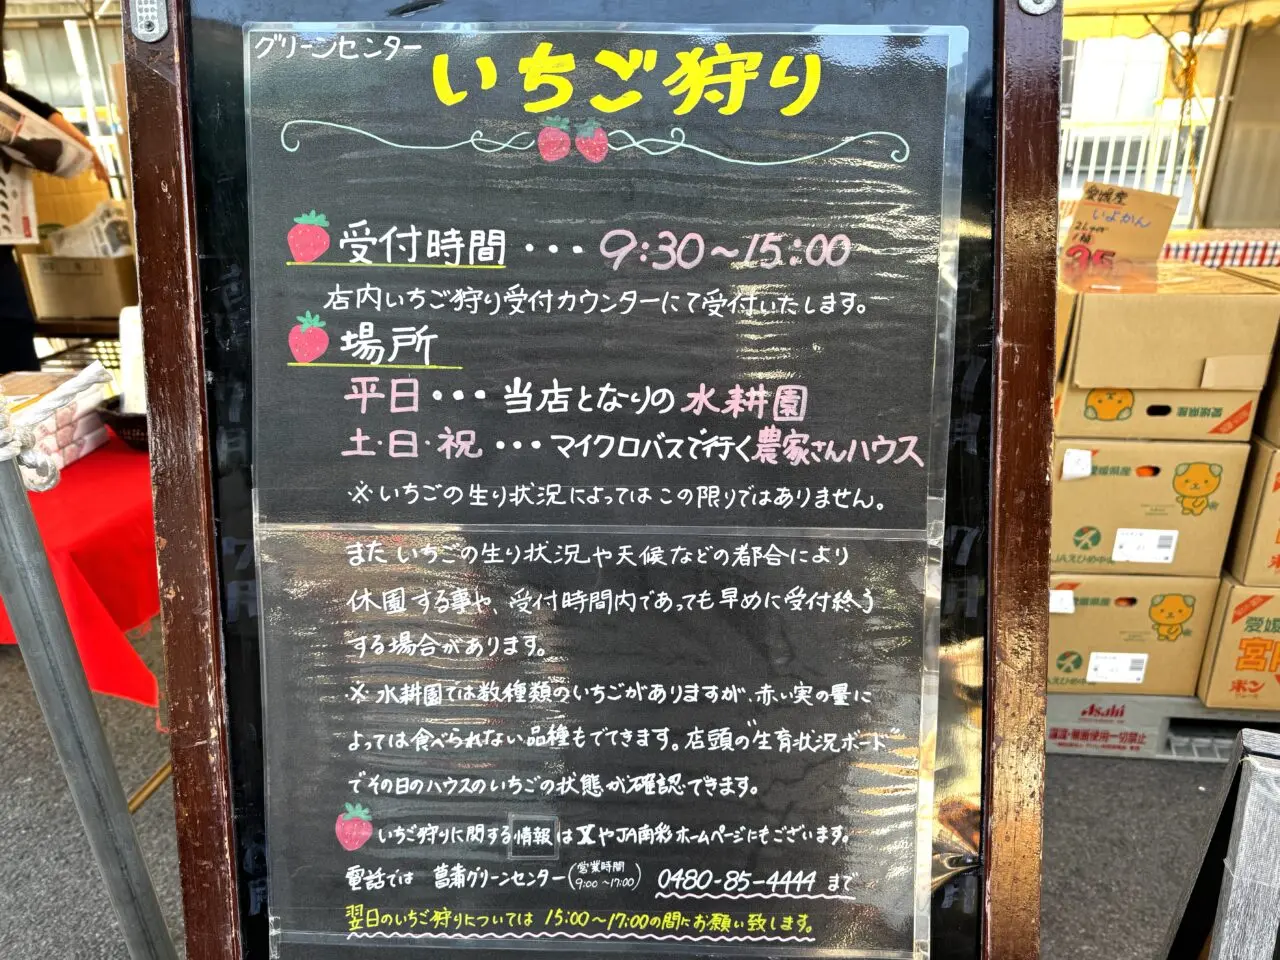 グリーンセンター
いちご狩り
受付時間・・・9:30〜15:00
店内いちご狩り受付カウンターにて受付いたします。
場所
平日・・・当店となりの水耕園
土・日・祝・・・マイクロバスで行く農家さんハウス
※いちごの生り状況によってはこの限りではありません。
またいちごの生り状況や天候などの都合により
休園する事や、受付時間内であっても早めに受付終う
する場合があります。
※水耕園では数種類のいちごがありますが、赤い実の量に
よっては食べられない品種もでてきます。店頭の"生育状況ボード"
でその日のハウスのいちごの状態が確認できます。
いちご狩りに関する情報はXやJA南彩ホームページにもございます。
電話では 菖蒲グリーンセンター(営業時間 9:00〜17:00) 0480-85-4444 まで
翌日のいちご狩りについては 15:00〜17:00の間にお願い致します。
愛媛産
いよかん
愛媛県産
愛媛県産
JAえひめ中央
愛媛県産
Asahi